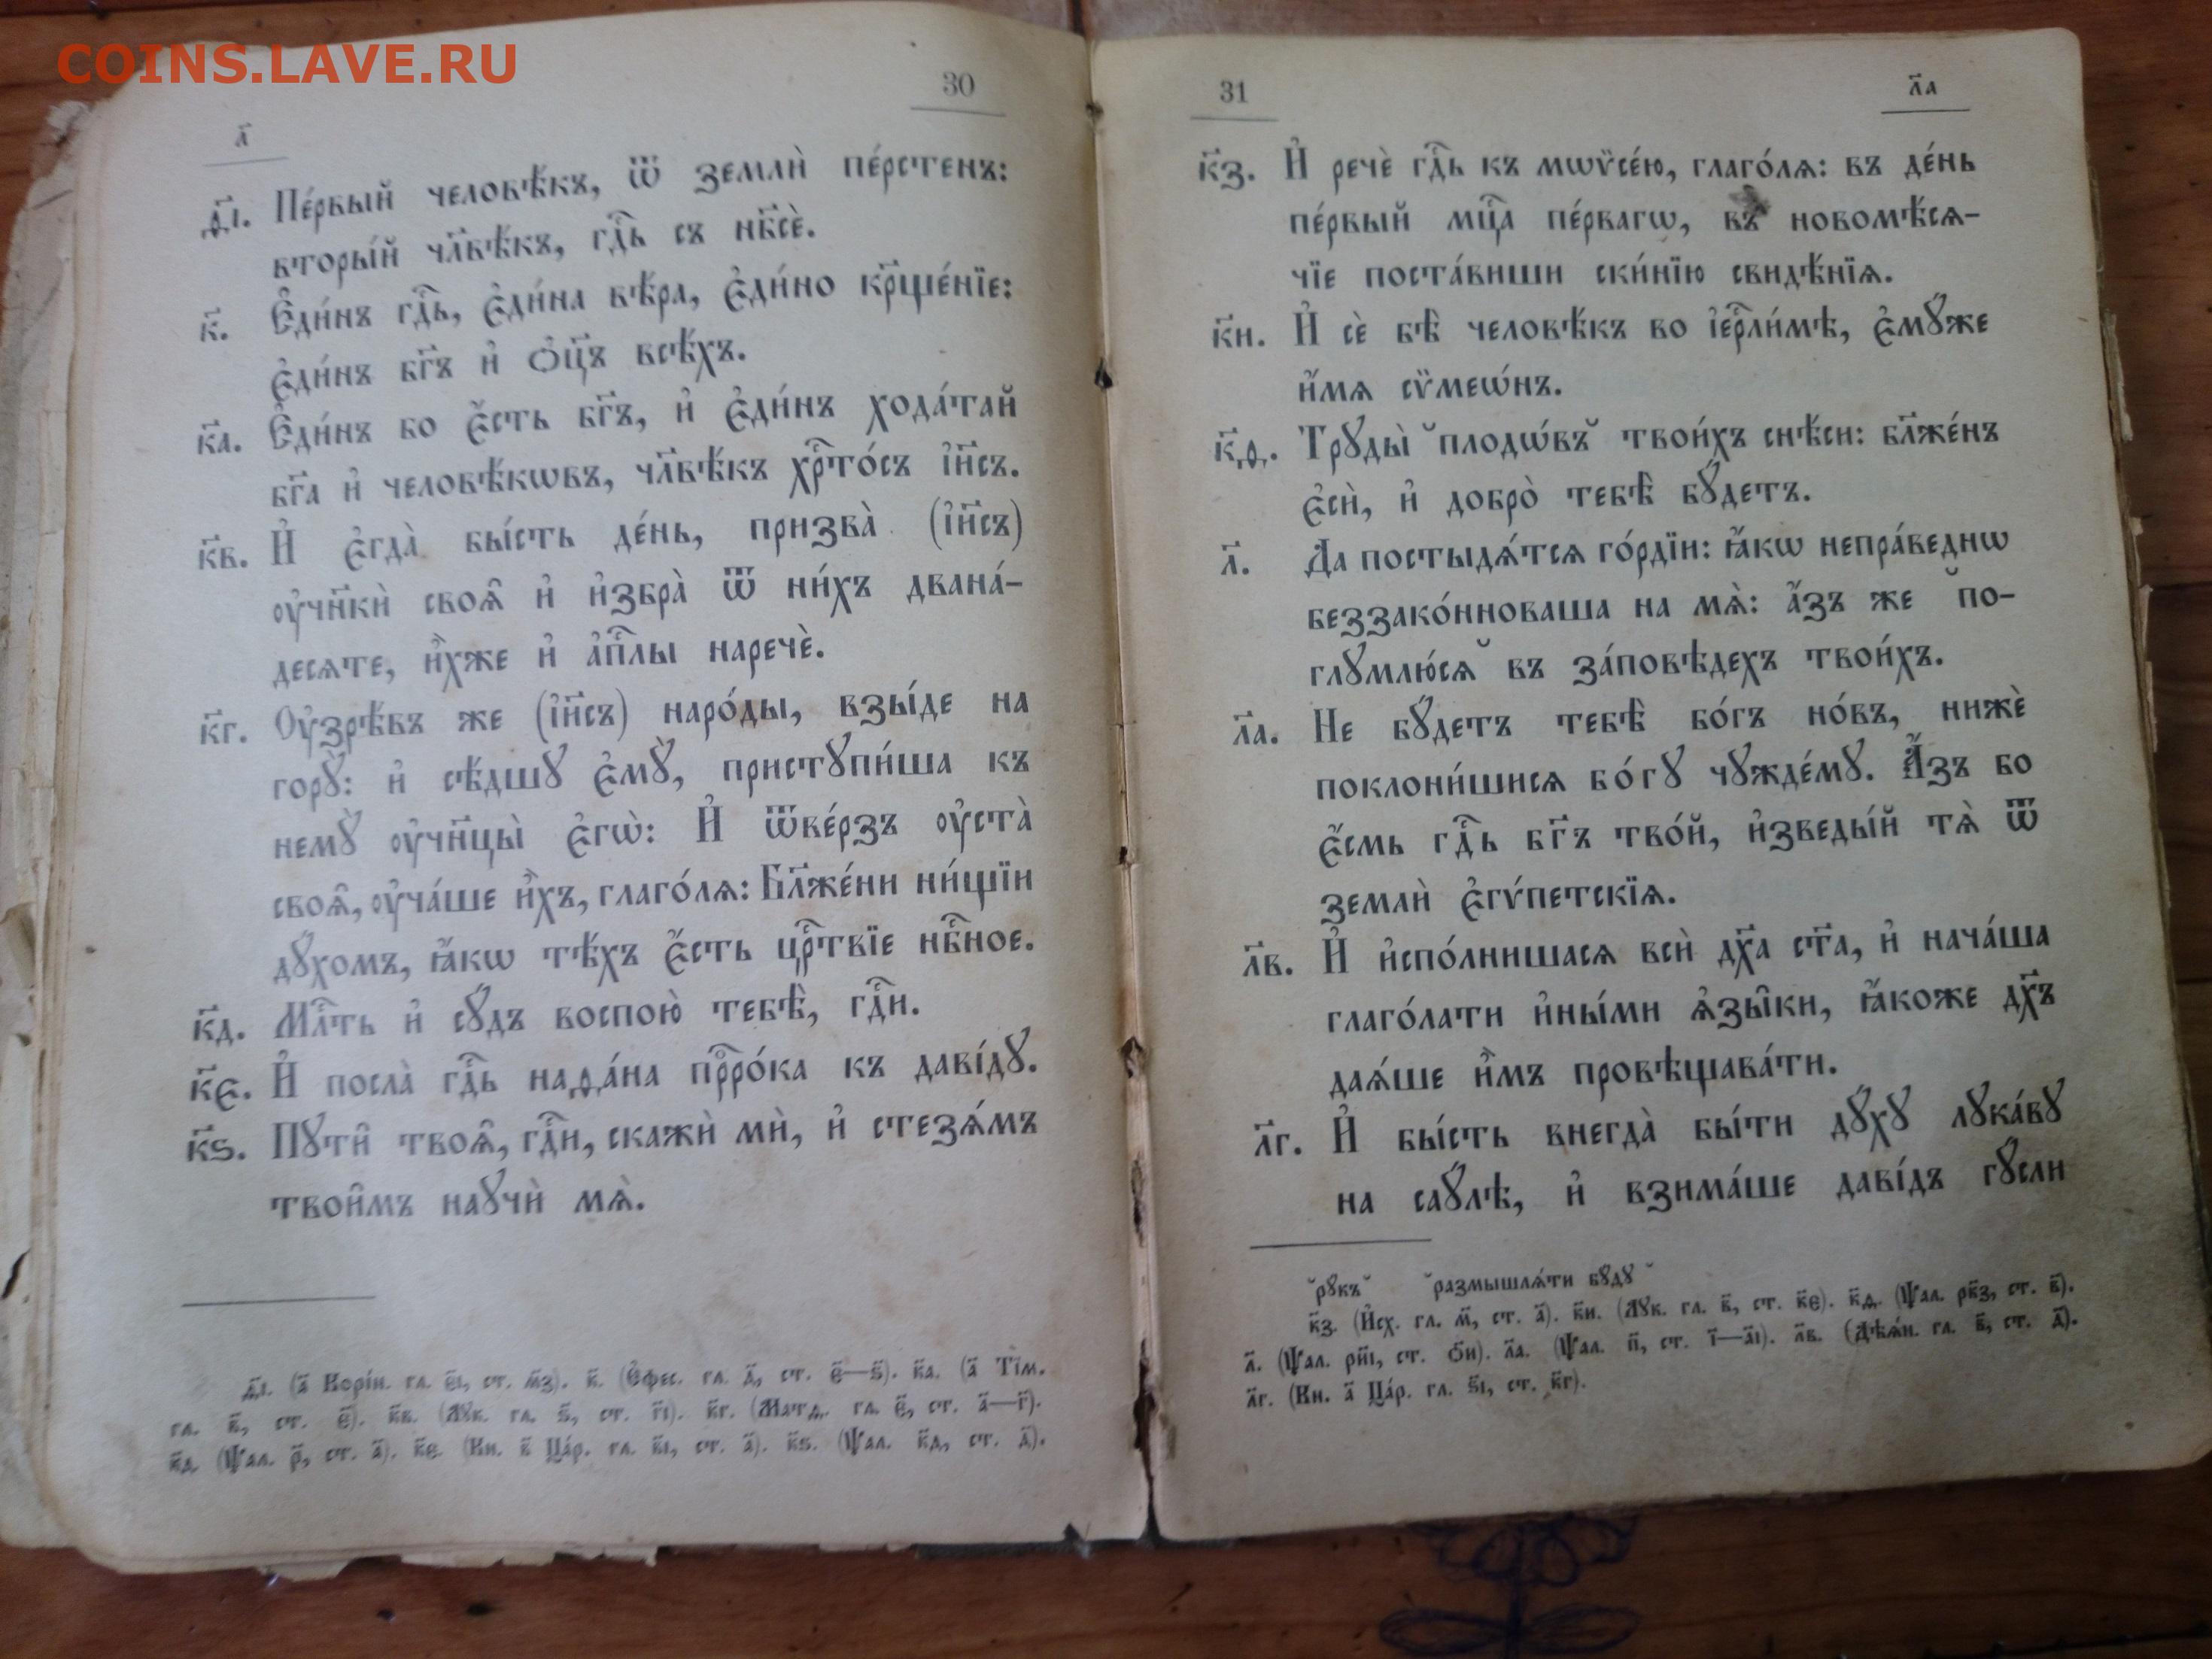 COINS.LAVE.RU
30
л҃
ѳ҃і. Пе́рвый человѣ́къ, ѿ землѝ пе́рстенъ:
вторы́й чл҃вѣ́къ, гдⷭ҇ь съ нб҃сѐ.
к҃. Є҆ди́нъ гдⷭ҇ь, є҆ди́на вѣ́ра, є҆ди́но кр҃ще́нїе:
є҆ди́нъ бг҃ъ и҆ ѻ҆ц҃ъ всѣ́хъ.
к҃а. Є҆ди́нъ бо є҆́сть бг҃ъ, и҆ є҆ди́нъ хода́тай
бг҃а и҆ человѣ́кѡвъ, чл҃вѣ́къ хрⷭ҇то́съ і҆и҃съ.
к҃в. И҆ є҆гда̀ бы́сть де́нь, призва̀ (і҆и҃съ)
ᲂу҆чн҃кѝ своѧ҄ и҆ и҆збра̀ ѿ ни́хъ двана́-
десѧте, и҆̀хже и҆ а҆пⷭ҇лы наречѐ.
к҃г. Оу҆зрѣ́въ же (і҆и҃съ) наро́ды, взы́де на
горꙋ̀: и҆ сѣ́дшꙋ є҆мꙋ̀, пристꙋпи́ша къ
немꙋ̀ ᲂу҆чн҃цы̀ є҆гѡ̀: И҆ ѿве́рзъ ᲂу҆ста̀
своѧ҄, ᲂу҆ча́ше и҆̀хъ, глаго́лѧ: Бл҃же́ни ни́щїи
дꙋ́хомъ, ꙗ҆́кѡ тѣ́хъ є҆́сть црⷭ҇твїе нбⷭ҇ное.
к҃д. Млⷭ҇ть и҆ сꙋ́дъ воспою̀ тебѣ̀, гдⷭ҇и.
к҃є. И҆ посла̀ гдⷭ҇ь наѳа́на прⷪ҇ро́ка къ даві́дꙋ.
к҃ѕ. Пꙋти҄ твоѧ҄, гдⷭ҇и, скажѝ мѝ, и҆ стезѧ́мъ
твои҄мъ наꙋчѝ мѧ̀.
ѳ҃і. (а҃ Корі́н. гл. є҃і, ст. м҃з). к҃. (Є҆фес. гл. д҃, ст. є҃—ѕ҃). к҃а. (а҃ Тїм.
гл. в҃, ст. є҃). к҃в. (Лꙋк. гл. ѕ҃, ст. г҃і). к҃г. (Матѳ. гл. є҃, ст. а҃—г҃).
к҃д. (Ѱал. р҃, ст. а҃). к҃є. (Кн. в҃ Ца́р. гл. в҃і, ст. а҃). к҃ѕ. (Ѱал. к҃д, ст. д҃).
31
л҃а
к҃з. И҆ речѐ гдⷭ҇ь къ мѡѷсе́ю, глаго́лѧ: въ де́нь
пе́рвый мцⷭ҇а пе́рвагѡ, въ новомѣ́сѧ-
чїе поста́виши ски́нїю свидѣ́нїѧ.
к҃и. И҆ сѐ бѣ̀ человѣ́къ во і҆ерⷭ҇ли́мѣ, є҆мꙋ́же
и҆́мѧ сѷмеѡ́нъ.
к҃ѳ. Трꙋды̀ ˇплодѡ́въˇ твои́хъ снѣ́си: бл҃же́нъ
є҆сѝ, и҆ добро̀ тебѣ̀ бꙋ́детъ.
л҃. Да постыдѧ́тсѧ го́рдїи: ꙗ҆́кѡ непра́веднѡ
беззако́нноваша на мѧ̀: а҆́зъ же ˇпо-
глꙋмлю́сѧˇ въ за́повѣдехъ твои́хъ.
л҃а. Не бꙋ́детъ тебѣ̀ бо́гъ но́въ, нижѐ
поклони́шисѧ бо́гꙋ чꙋжде́мꙋ. А҆́зъ бо
є҆́смь гдⷭ҇ь бг҃ъ тво́й, и҆зведы́й тѧ̀ ѿ
землѝ є҆гѵ́петскїѧ.
л҃в. И҆ и҆спо́лнишасѧ всѝ дх҃а ст҃а, и҆ нача́ша
глаго́лати и҆ны́ми ѧ҆зы҄ки, ꙗ҆́коже дх҃ъ
даѧ́ше и҆̀мъ провѣщава́ти.
л҃г. И҆ бы́сть внегда̀ бы́ти дꙋ́хꙋ лꙋка́вꙋ
на саꙋ́лѣ, и҆ взима́ше даві́дъ гꙋ́сли
ˇрꙋкъˇ ˇразмышлѧ́ти бꙋдꙋˇ
к҃з. (И҆сх. гл. м҃, ст. а҃). к҃и. (Лꙋк. гл. в҃, ст. к҃є). к҃ѳ. (Ѱал. рк҃з, ст. в҃).
л҃. (Ѱал. рн҃і, ст. ѻ҃и). л҃а. (Ѱал. п҃, ст. і҃—а҃і). л҃в. (Дѣѧ́н. гл. в҃, ст. д҃).
л҃г. (Кн. а҃ Ца́р. гл. ѕ҃і, ст. к҃г).